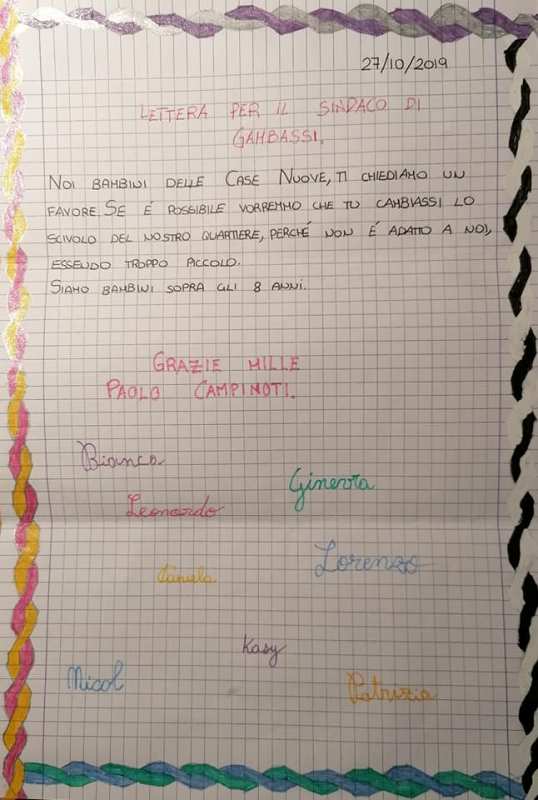 27/10/2019
LETTERA PER IL SINDACO DI
GAMBASSI.
NOI BAMBINI DELLE CASE NUOVE, TI CHIEDIAMO UN
FAVORE. SE É POSSIBILE VORREMMO CHE TU CAMBIASSI LO
SCIVOLO DEL NOSTRO QUARTIERE, PERCHÉ NON É ADATTO A NOI,
ESSENDO TROPPO PICCOLO.
SIAMO BAMBINI SOPRA GLI 8 ANNI.
GRAZIE MILLE
PAOLO CAMPINOTI.
Bianca
Ginevra
Leonardo
Lorenzo
Kasy
Nicol
Patrizia